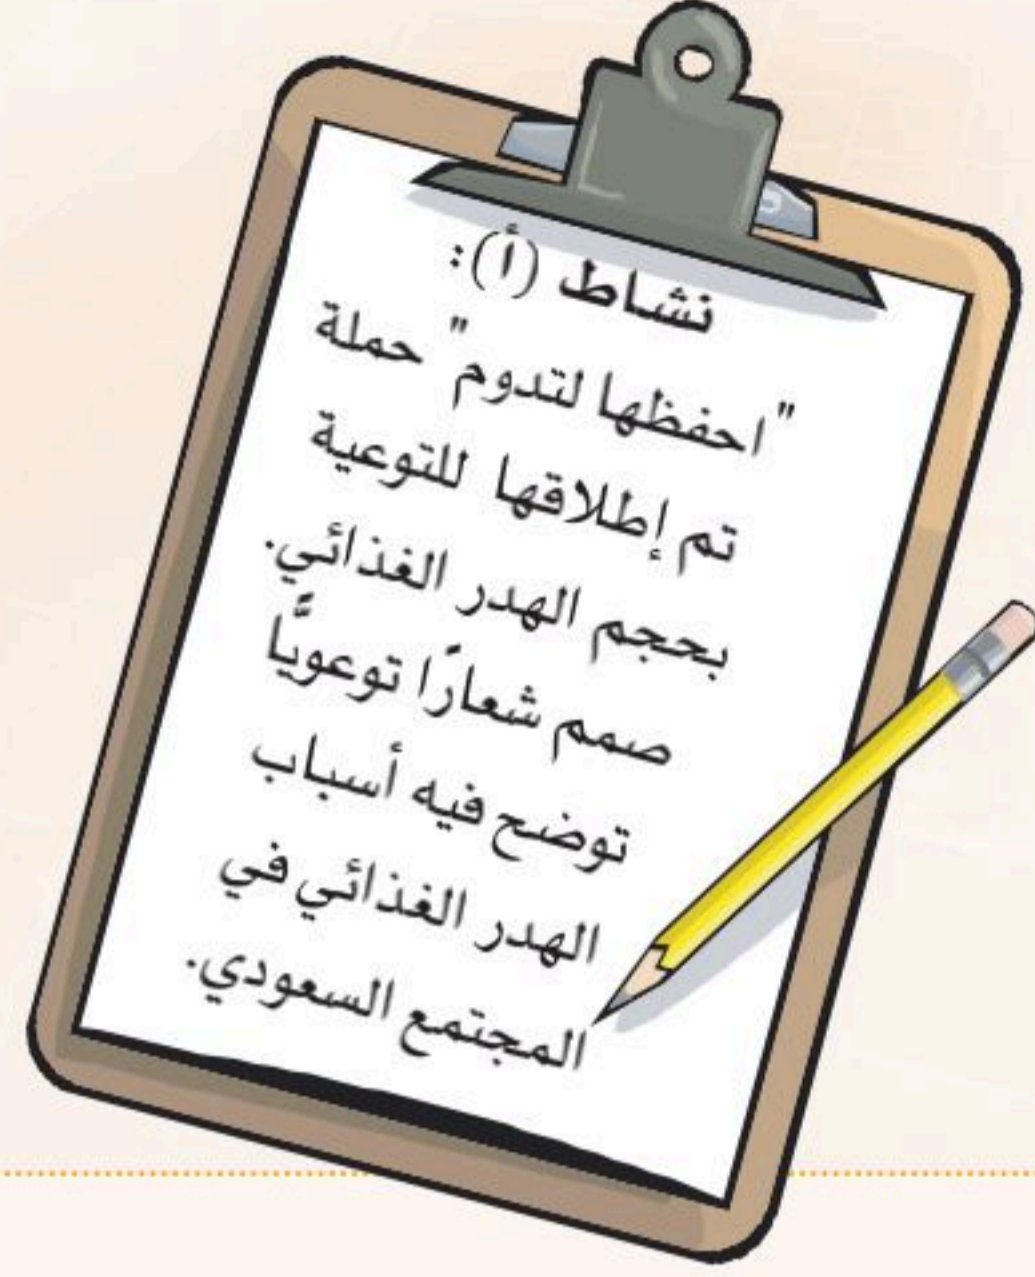 نشاط (أ):
"احفظها لتدوم" حملة
تم إطلاقها للتوعية
بحجم الهدر الغذائي.
صمم شعارًا توعويًّا
توضح فيه أسباب
الهدر الغذائي في
المجتمع السعودي.